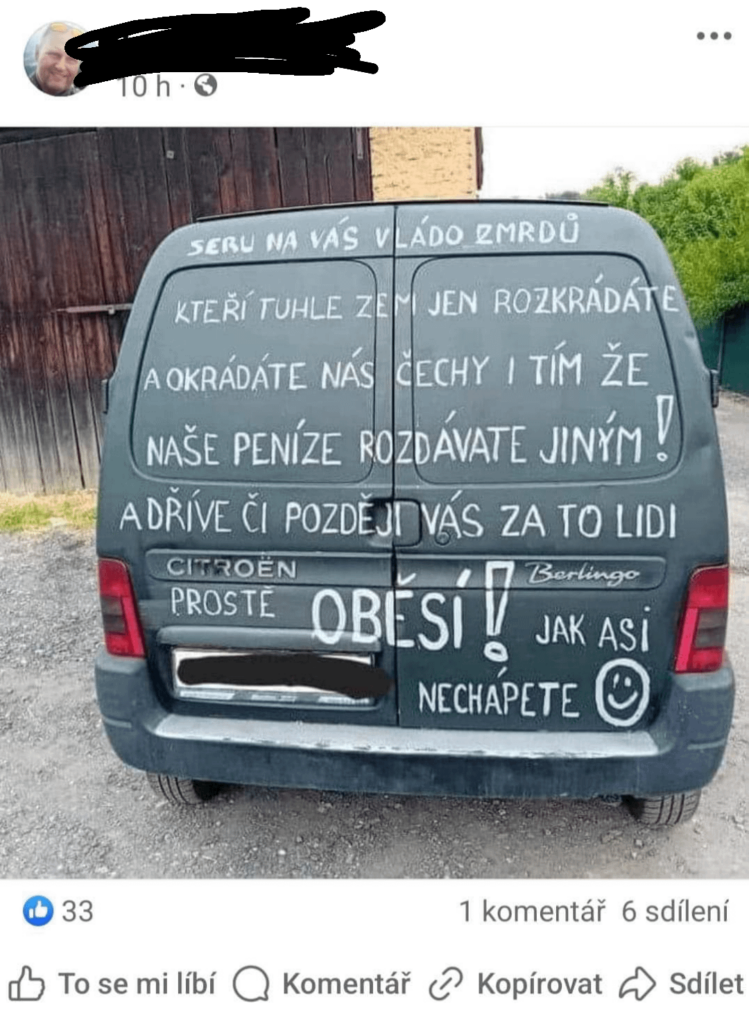 10 h
SERU NA VÁS VLÁDO ZMRDŮ
KTEŘÍ TUHLE ZEM JEN ROZKRÁDÁTE
A OKRÁDÁTE NÁS ČECHY I TÍM ŽE
NAŠE PENÍZE ROZDÁVATE JINÝM!
A DŘÍVE ČI POZDĚJI VÁS ZA TO LIDI
CITROËN Berlingo
PROSTĚ OBĚSÍ! JAK ASI
NECHÁPETE
33
1 komentář 6 sdílení
To se mi líbí Komentář Kopírovat Sdílet